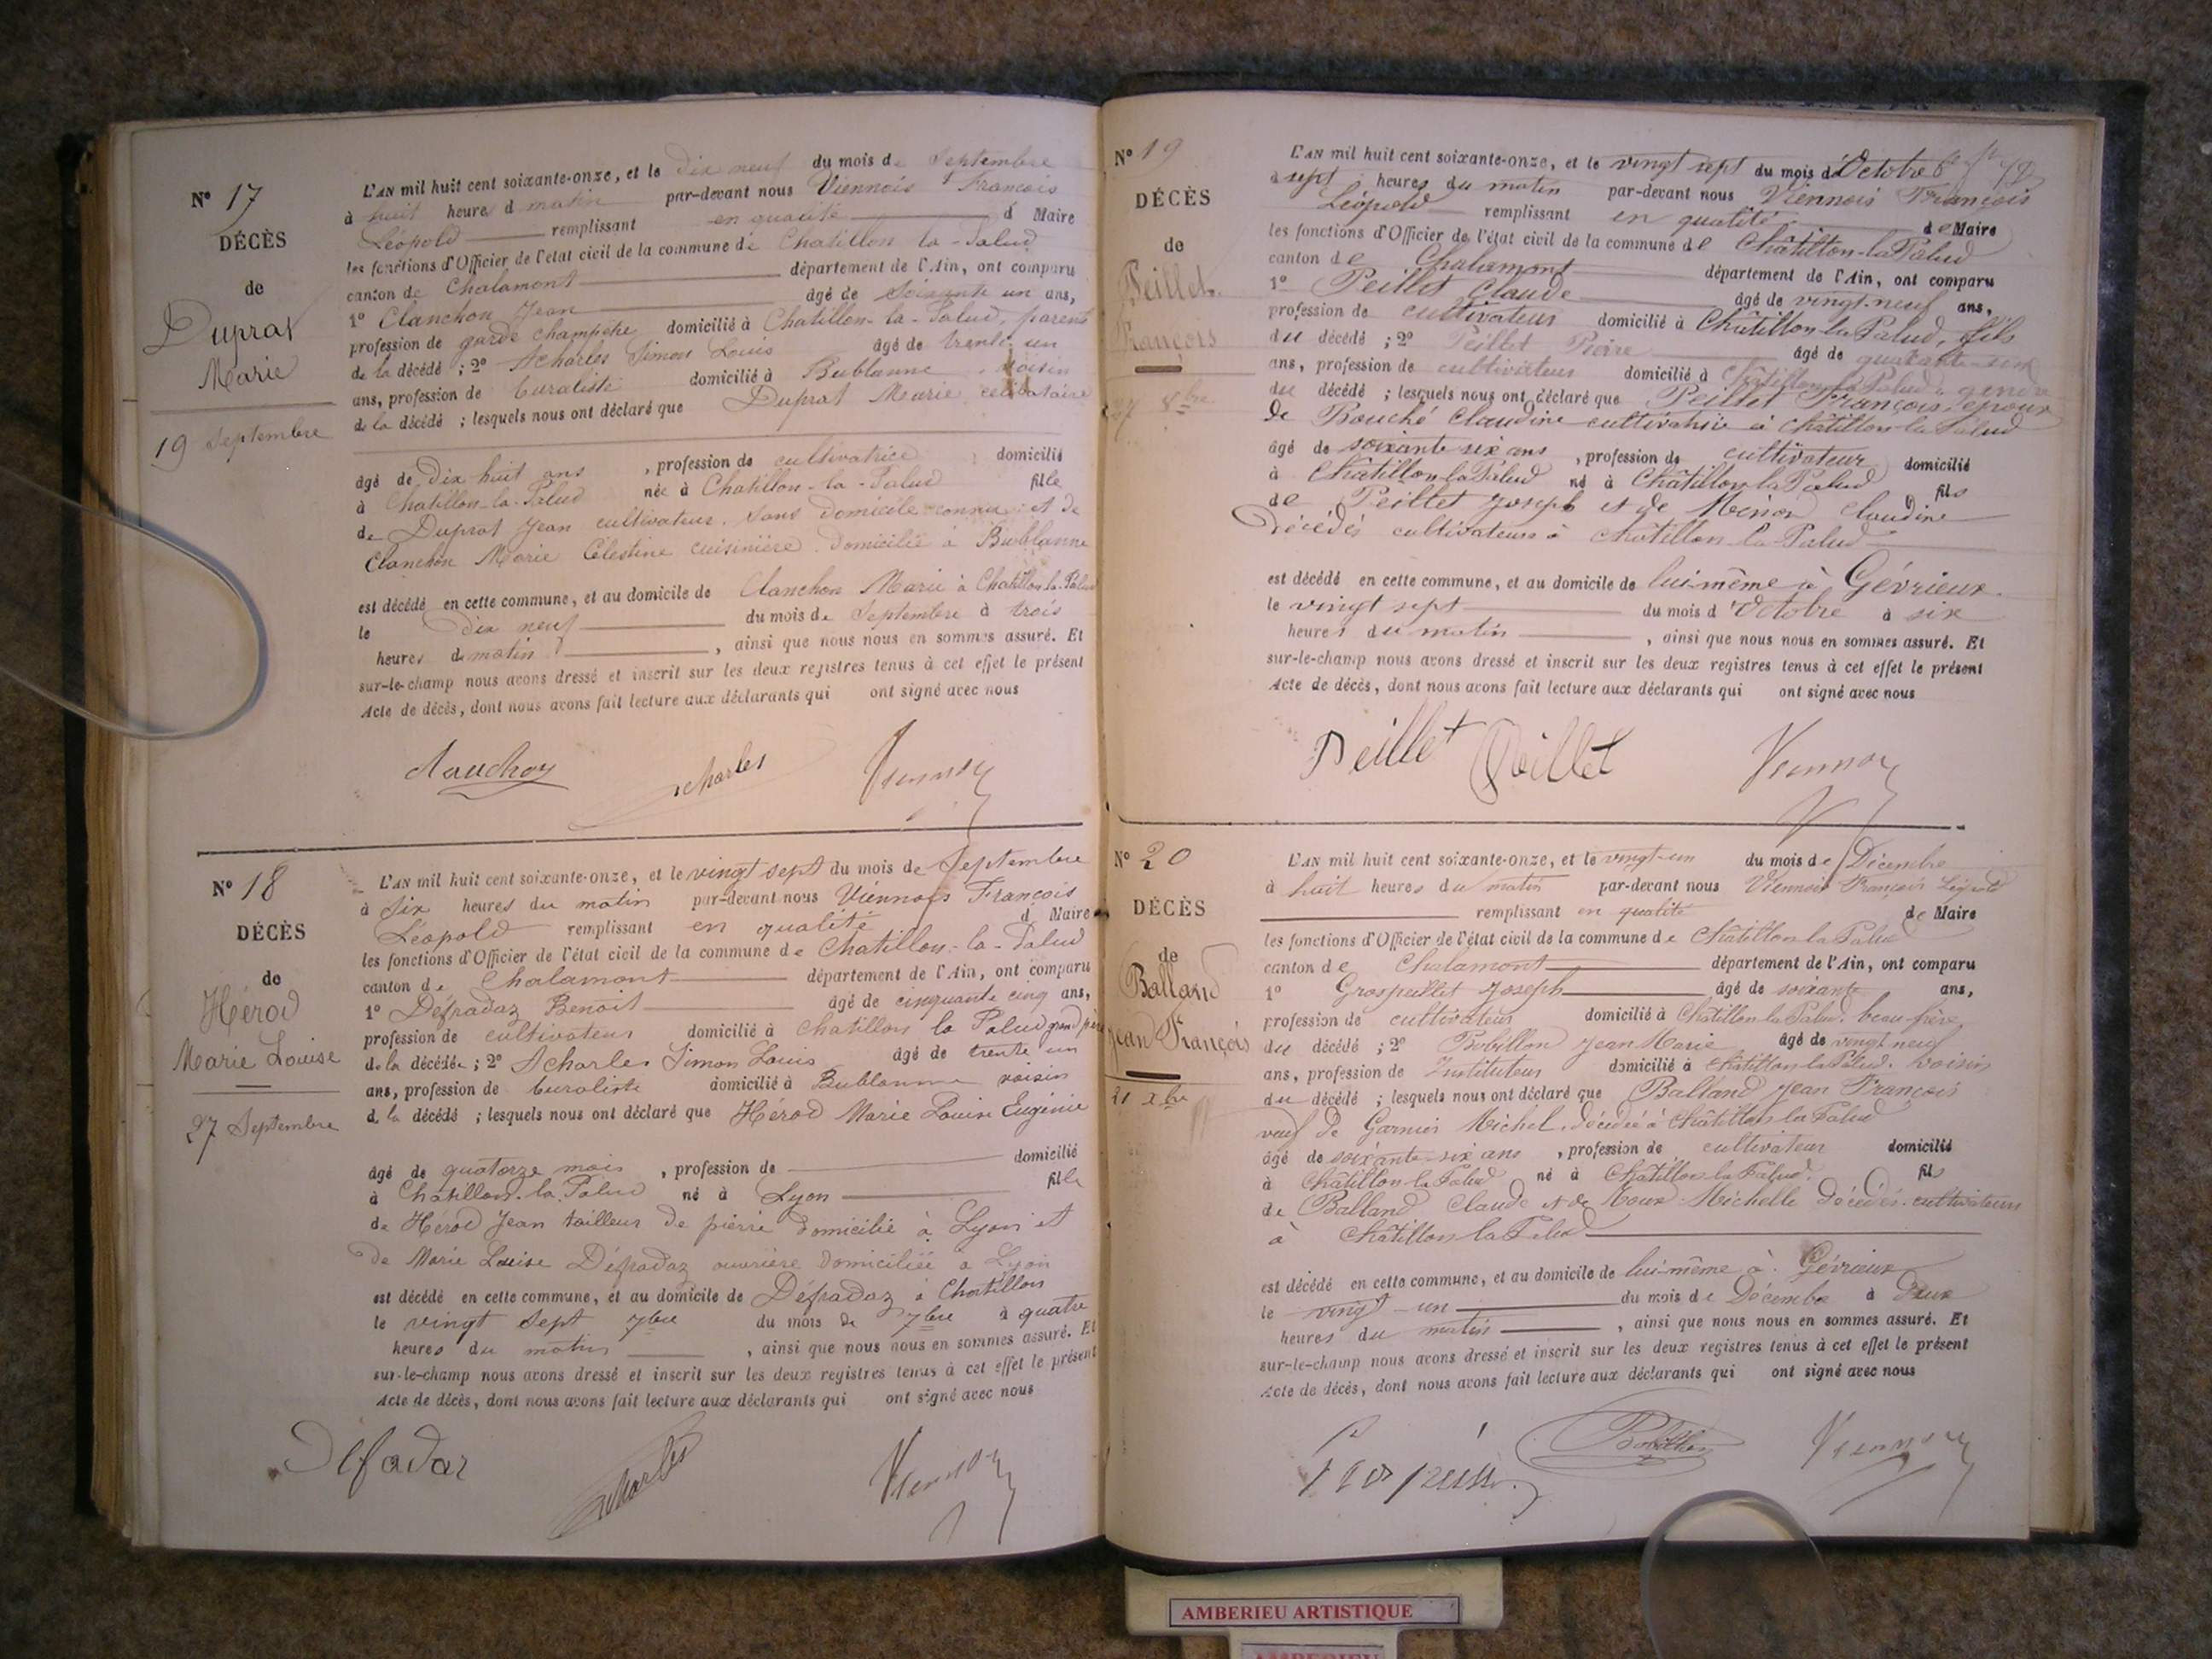 N° 17
DÉCÈS
de
Duprat
Marie
19 Septembre
L'AN mil huit cent soixante-onze, et le dix neuf du mois de Septembre
à huit heures d matin par-devant nous Viennois François
Léopold remplissant en qualité d Maire
les fonctions d'Officier de l'état civil de la commune de Chatillon la-Palud
canton de Chalamont département de l'Ain, ont comparu
1° Clanchon Jean âgé de soixante un ans,
profession de garde champêtre domicilié à Chatillon-la-Palud, parent
de la décédé ; 2° Acharles Simon Louis âgé de trente un
ans, profession de buraliste domicilié à Bublanne voisin
de la décédé ; lesquels nous ont déclaré que Duprat Marie célibataire
âgé de Dix huit ans , profession de cultivatrice domicilié
à Chatillon-la-Palud née à Chatillon-la-Palud fille
de Duprat Jean cultivateur, sans domicile connu et de
Clanchon Marie Célestine cuisinière domicilié à Bublanne
est décédé en cette commune, et au domicile de Clanchon Marie à Chatillon-la-Palud
le Dix neuf du mois de Septembre à trois
heures d matin , ainsi que nous nous en sommes assuré. Et
sur-le-champ nous avons dressé et inscrit sur les deux registres tenus à cet effet le présent
Acte de décès, dont nous avons fait lecture aux déclarants qui ont signé avec nous
Acharles Viennois
N° 18
DÉCÈS
de
Hérod
Marie Louise
27 Septembre
L'AN mil huit cent soixante-onze, et le vingt sept du mois de Septembre
à six heures du matin par-devant nous Viennois François
Léopold remplissant en qualité d Maire
les fonctions d'Officier de l'état civil de la commune de Chatillon-la-Palud
canton de Chalamont département de l'Ain, ont comparu
1° Défradaz Benoit âgé de cinquante cinq ans,
profession de cultivateur domicilié à Chatillon la Palud grand père
de la décédée ; 2° Acharles Simon Louis âgé de trente un
ans, profession de buraliste domicilié à Bublanne voisin
d la décédé ; lesquels nous ont déclaré que Hérod Marie Louise Eugénie
âgé de quatorze mois , profession de domicilié
à Chatillon-la-Palud né à Lyon fille
de Hérod Jean tailleur de pierre domicilié à Lyon et
de Marie Louise Défradaz ouvrière domiciliée à Lyon
est décédé en cette commune, et au domicile de Défradaz à Chatillon
le vingt sept 7bre du mois de 7bre à quatre
heures du matin , ainsi que nous nous en sommes assuré. Et
sur-le-champ nous avons dressé et inscrit sur les deux registres tenus à cet effet le présent
Acte de décès, dont nous avons fait lecture aux déclarants qui ont signé avec nous
Defadaz Acharles Viennois
N° 19
DÉCÈS
de
Peillet
François
27 8bre
L'AN mil huit cent soixante-onze, et le vingt sept du mois d'Octobre
à sept heures du matin par-devant nous Viennois François
Léopold remplissant en qualité de Maire
les fonctions d'Officier de l'état civil de la commune de Châtillon-la Palud
canton de Chalamont département de l'Ain, ont comparu
1° Peillet Claude âgé de vingt-neuf ans,
profession de cultivateur domicilié à Châtillon la Palud, fils
du décédé ; 2° Peillet Pierre âgé de quarante-six
ans, profession de cultivateur domicilié à Châtillon la Palud, gendre
du décédé ; lesquels nous ont déclaré que Peillet François, époux
de Bouché Claudine cultivatrice à Châtillon-la Palud
âgé de soixante six ans , profession de cultivateur domicilié
à Châtillon la Palud né à Châtillon la Palud fils
de Peillet Joseph et de Claudine
décédés cultivateurs à Châtillon la-Palud
est décédé en cette commune, et au domicile de lui-même à Gévrieux.
le vingt sept du mois d'Octobre à six
heures du matin , ainsi que nous nous en sommes assuré. Et
sur-le-champ nous avons dressé et inscrit sur les deux registres tenus à cet effet le présent
Acte de décès, dont nous avons fait lecture aux déclarants qui ont signé avec nous
Peillet Peillet Viennois
N° 20
DÉCÈS
de
Balland
Jean François
21 Xbre
L'AN mil huit cent soixante-onze, et le vingt-un du mois de Décembre
à huit heures du matin par-devant nous Viennois François Léopold
remplissant en qualité de Maire
les fonctions d'Officier de l'état civil de la commune de Châtillon la Palud
canton de Chalamont département de l'Ain, ont comparu
1° Grospeillet Joseph âgé de soixante ans,
profession de cultivateur domicilié à Châtillon la Palud. beau-frère
du décédé ; 2° Bobillon Jean Marie âgé de vingt neuf
ans, profession de Instituteur domicilié à Châtillon la Palud. voisin
du décédé ; lesquels nous ont déclaré que Balland Jean François
veuf de Garnier Michel, décédée à Châtillon la Palud
âgé de soixante-six ans , profession de cultivateur domicilié
à Châtillon la Palud né à Châtillon la Palud. fils
de Balland Claude et de Roux Michelle décédés cultivateurs
à Châtillon la Palud
est décédé en cette commune, et au domicile de lui-même à Gévrieux
le vingt-un du mois de Décembre à deux
heures du matin , ainsi que nous nous en sommes assuré. Et
sur-le-champ nous avons dressé et inscrit sur les deux registres tenus à cet effet le présent
Acte de décès, dont nous avons fait lecture aux déclarants qui ont signé avec nous
Bobillon Viennois
AMBERIEU ARTISTIQUE
AMBERIEU